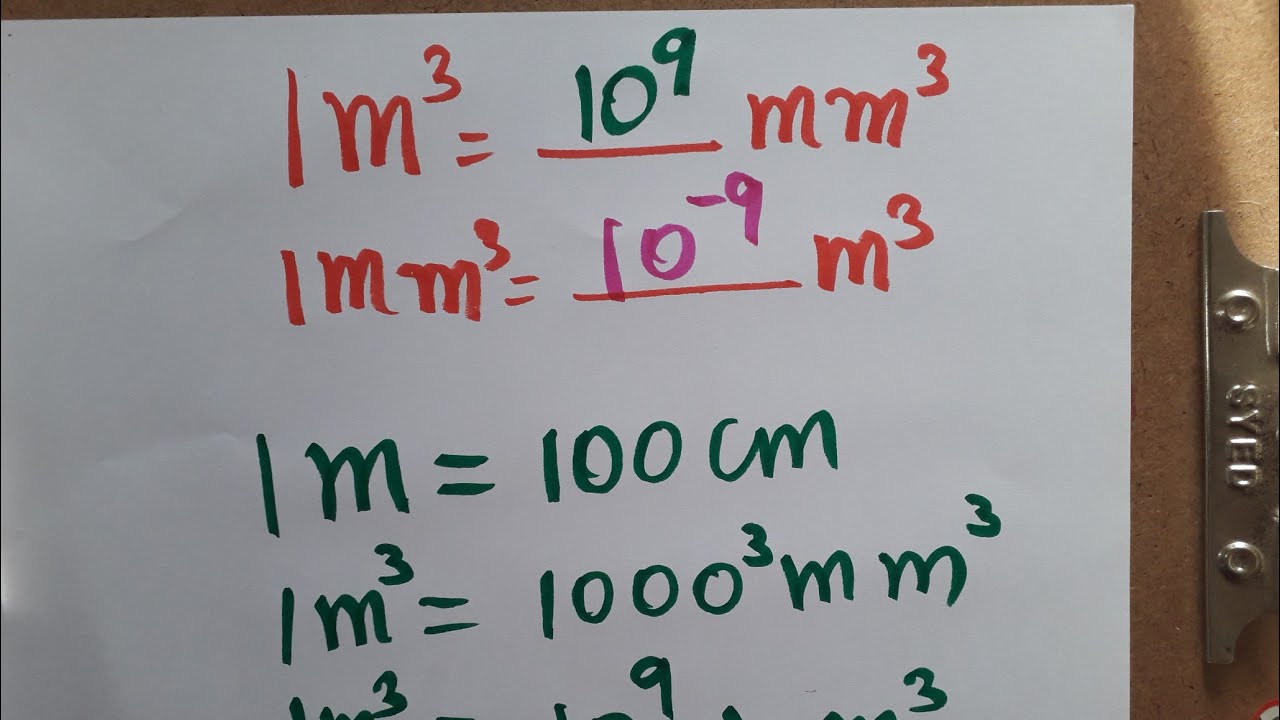 1m³ = 10⁹ mm³
1mm³ = 10⁻⁹ m³
1m = 100cm
1m³ = 1000³mm³
1m³ = 10⁹ mm³
SYIED